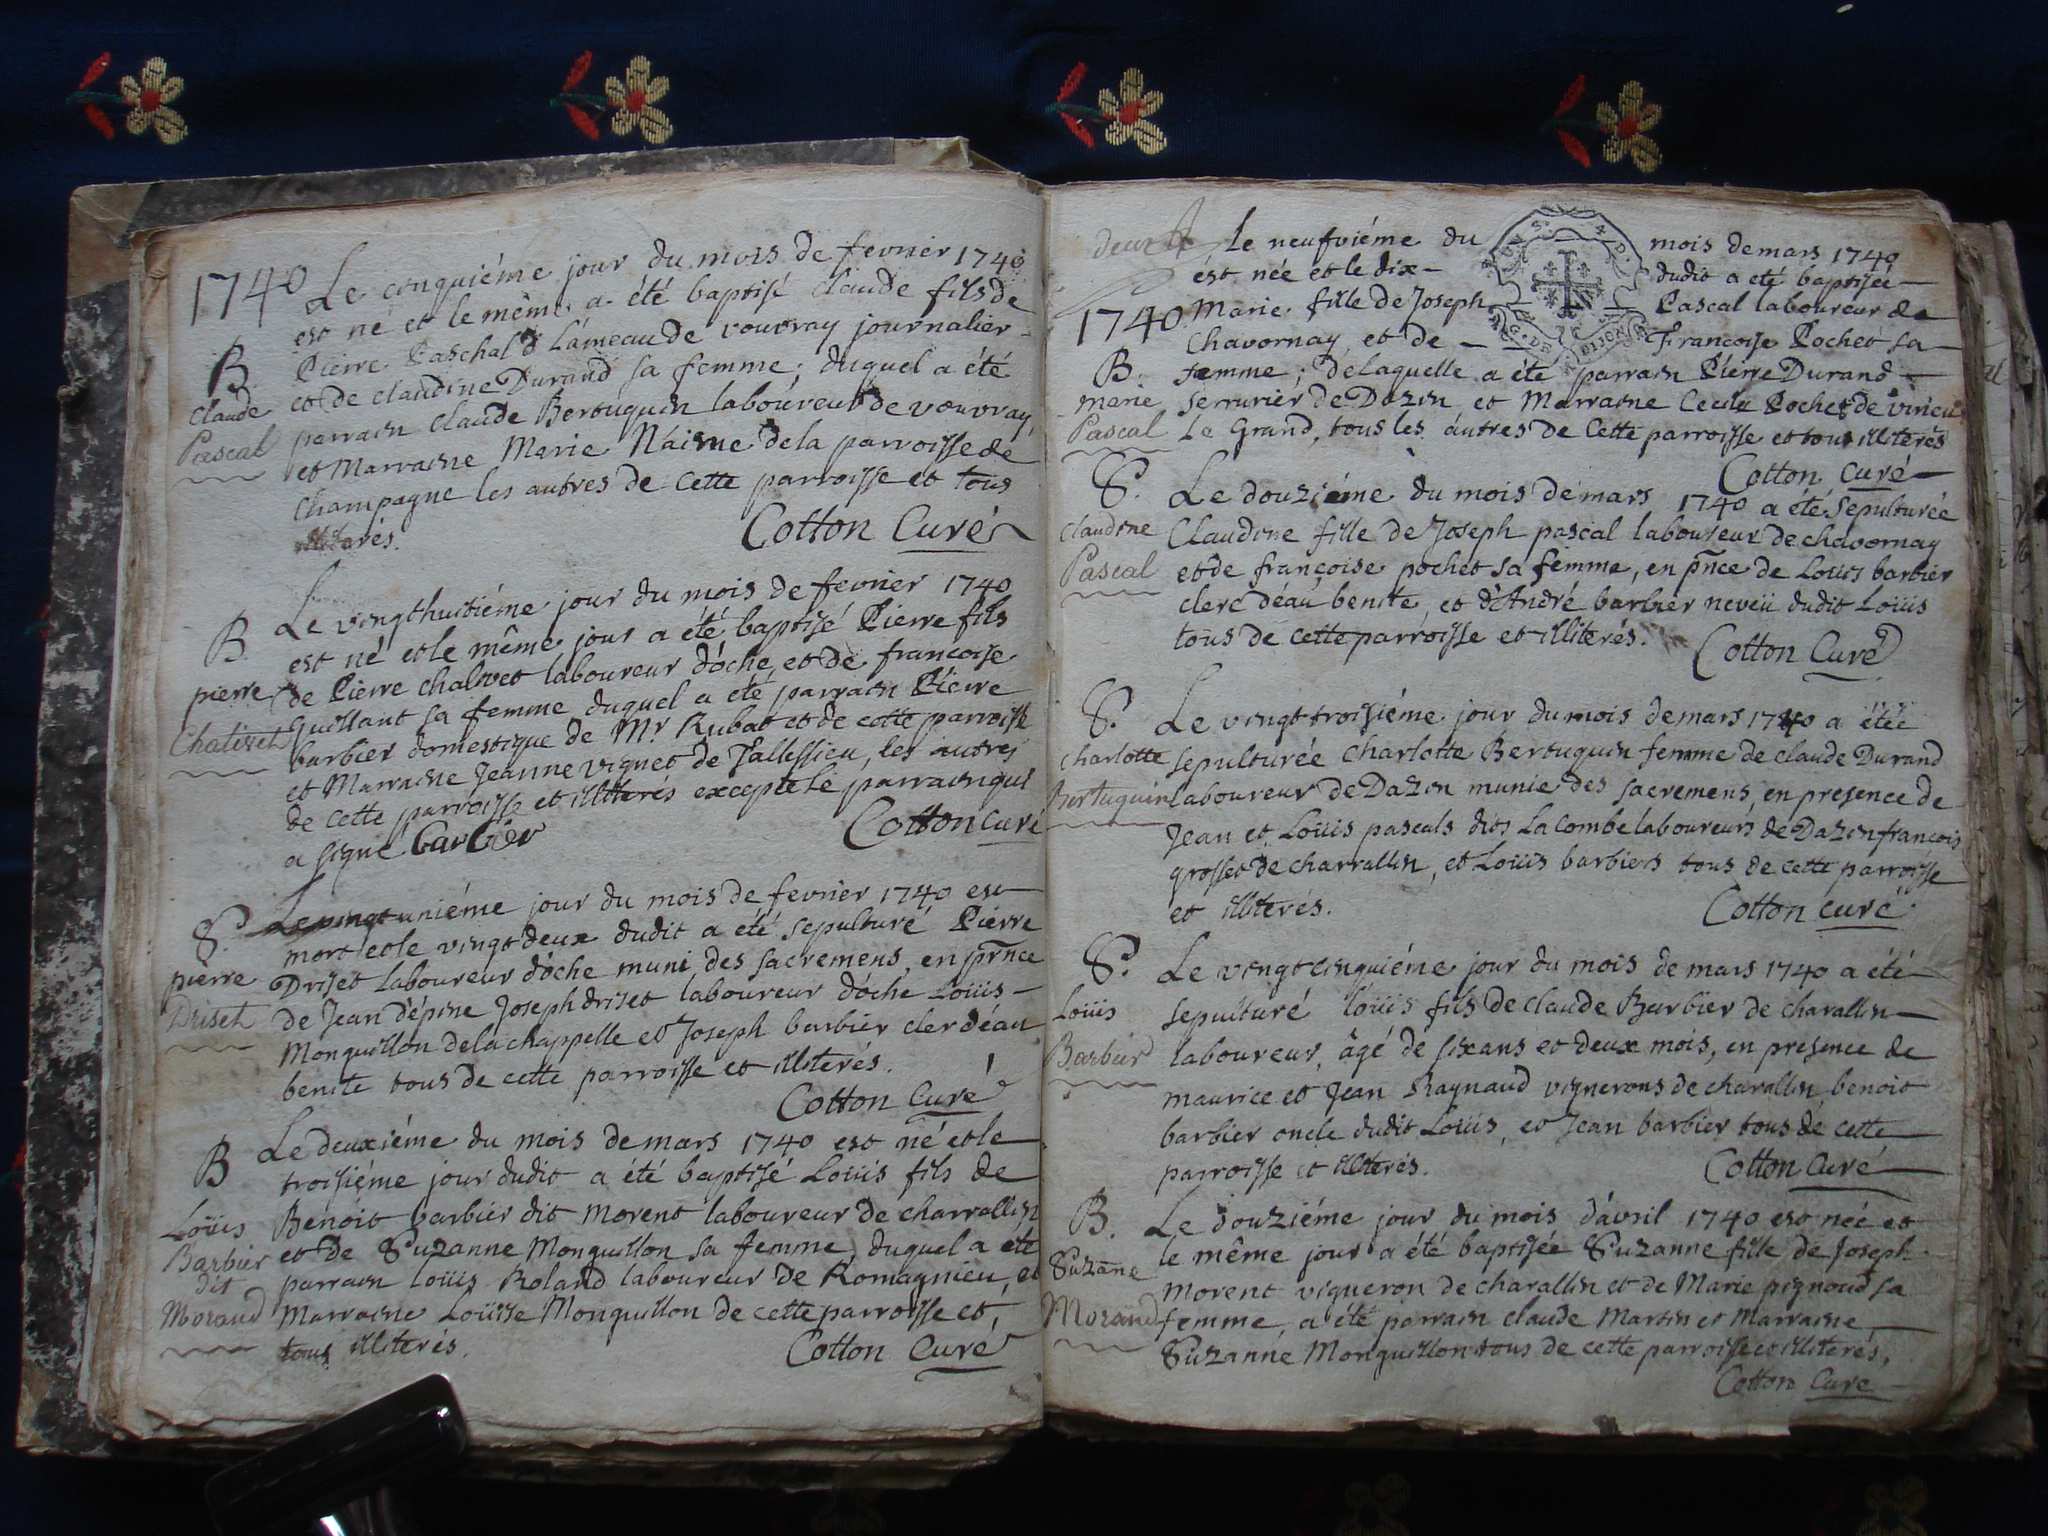 1740
Le cinquiéme jour du mois de fevrier 1740
est né et le même a été baptisé Claude fils de
Pierre Paschal d Lameau de vouvray journalier
B.
Claude
Pascal
et de claudine Durand sa femme, duquel a été
parrain Claude Bertuquin laboureur de vouvray,
et Marraine Marie Nairne dela parroisse de
champagne les autres de cette parroisse et tous
illiterés.
Cotton Curé
B.
pierre
Chalivet
Le vingthuitiéme jour du mois de fevrier 1740
est né et le même jour a été baptisé Pierre fils
de Pierre chalivet laboureur d'óche, et de françoise
Guillant sa femme duquel a été parrain Pierre
barbier domestique de Mr. Rubat et de cette parroisse
et Marraine Jeanne vignet de Tallissieu, les autres
de cette parroisse et illiterés excepté le parrain qui
a signé barbier
Cotton curé
S.
pierre
Driset
Le vingt uniéme jour du mois de fevrier 1740 est
mort et le vingt deux dudit a été sepulturé Pierre
Driset laboureur d'óche muni des sacremens, en pñce
de Jean d'épine Joseph driset laboureur d'óche Loüis
Monguillon dela chappelle et Joseph barbier clerc d'éau
benite tous de cette parroisse et illiterés.
Cotton Curé
B
Loüis
Barbier
dit
Moraud
Le deuxiéme du mois de mars 1740 est né et le
troisiéme jour dudit a été baptisé Loüis fils de
Benoit barbier dit Morent laboureur de charrallin
et de Suzanne Monguillon sa femme, duquel a été
parrain loüis Roland laboureur de Romagnieu, et
Marraine Loüise Monguillon de cette parroisse et
tous illiterés.
Cotton Curé
deux
Le neufviéme du mois de mars 1740
ést née et le dix- dudit a eté baptisée
1740
Marie fille de Joseph Pascal laboureur de
Chavornay, et de Françoise Pochet sa
B.
marie
Pascal
femme; de laquelle a été parrain Piérre Durand
serrurier de Dazin et Marraine Cecile Pochet de virieu
Le Grand, tous les autres de cette parroisse et tous illiterés
Cotton curé
S.
claudine
Pascal
Le douziéme du mois de mars 1740 a été sepulturée
Claudine fille de Joseph pascal laboureur de chavornay
et de françoise pochet sa femme, en pñce de Loüis barbier
clerc d'éau benite, et d'André barbier neveü dudit Loüis
tous de cette parroisse et illiterés.
Cotton Curé
S.
Charlotte
Bertuquin
Le vingt troisiéme jour du mois de mars 1740 a étée
sepulturée charlotte Bertuquin femme de claude Durand
laboureur de Dazin munie des sacremens, en presence de
Jean et Loüis pascals dits Lacombe laboureurs de Dazin françois
grosset de charrallin, et Loüis barbiers tous de cette parroisse
et illiterés.
Cotton curé
S.
Loüis
Barbier
Le vingt cinquiéme jour du mois de mars 1740 a été
sepulturé loüis fils de claude Barbier de charallin
laboureur, âgé de six ans et deux mois, en presence de
maurice et Jean Raynaud vignerons de charallin, benoit
barbier oncle dudit Loüis, et Jean barbier tous de cette
parroisse et illiterés.
Cotton Curé
B.
Suzane
Morand
Le douziéme jour du mois d'avril 1740 est née et
le même jour a été baptisée Suzanne fille de Joseph
morent vigneron de charallin et de Marie pignoud sa
femme, a été parrain claude Martin et Marraine
Suzanne Monguillon tous de cette parroisse et illiterés,
Cotton Curé